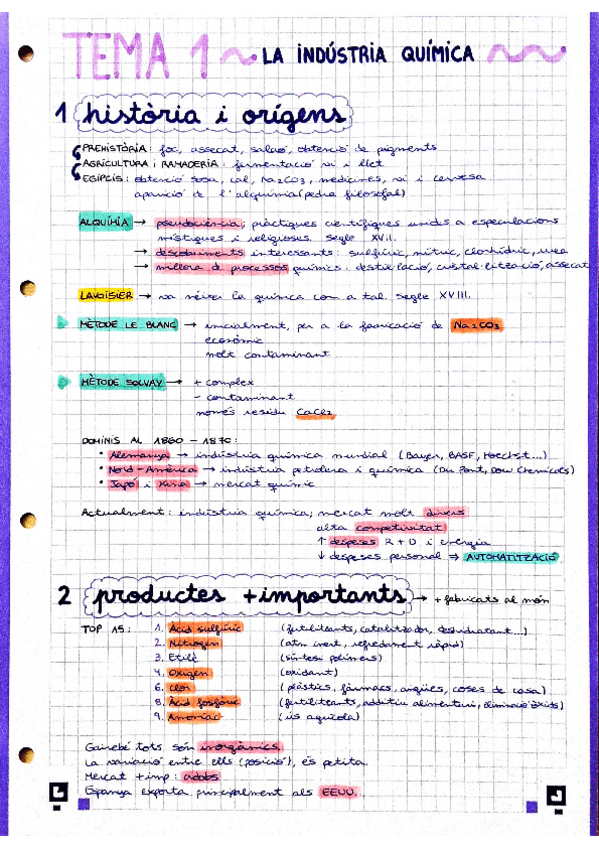 TEMA 1 ~ LA INDÚSTRIA QUÍMICA
1 història i orígens
PREHISTÒRIA: foc, assecat, salaó, obtenció de pigments
AGRICULTURA i RAMADERIA: fermentació vi i llet
EGIPCIS: obtenció sosa, cal, Na2CO3, medicines, vi i cervesa
aparició de l'alquímia (pedra filosofal)
ALQUÍMIA → pseudociència, pràctiques científiques unides a especulacions
místiques i religioses. segle XVII.
→ descobriments interessants: sulfúric, nítric, clorhídric, urea
→ millora de processos químics: destil·lació, cristal·lització, assecat
LAVOISIER → va néixer la química com a tal. segle XVIII.
MÈTODE LE BLANC → inicialment, per a la fabricació de Na2CO3
econòmic
molt contaminant
MÈTODE SOLVAY → + complex
- contaminant
només residu CaCl2
DOMINIS AL 1860 - 1870:
• Alemanya → indústria química mundial (Bayer, BASF, Hoechst...)
• Nord-Amèrica → indústria petrolera i química (Du Pont, Dow Chemicals)
• Japó i Xina → mercat químic
Actualment: indústria química, mercat molt divers
alta competivitat
↑ despeses R+D i energia
↓ despeses personal ⇒ AUTOMATITZACIÓ
2 productes +importants → + fabricats al món
TOP 15: 1. Àcid sulfúric (fertilitzants, catalitzador, deshidratant...)
2. Nitrogen (atm inert, refredament ràpid)
3. Etilè (síntesi polímers)
4. Oxigen (oxidant)
6. Clor (plàstics, fàrmacs, aigües, coses de casa)
8. Àcid fosfòric (fertilitzants, additiu alimentari, eliminació òxids)
9. Amoníac (ús agrícola)
Gairebé tots són inorgànics.
La variació entre ells (posició), és petita.
Mercat +imp: adobs
Espanya exporta principalment als EEUU.